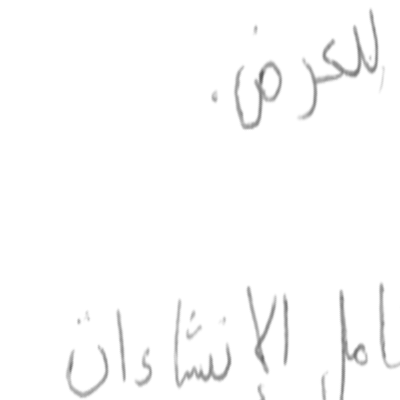 للعرض.
امل الإنشاءات